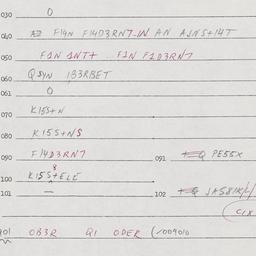 030 0
040 F14N F14D3RN7-1N AN A1NS+14T
050 F1N 1NT+ F1N F1D3RN7
060 QSYN 1B3RBET
061 0
070 K15S+N
080 K15S+NS
090 F14D3RN7 091 Q PE55X
100 K15S+ELE
101 — 102 Q
901 OB3R Q1 ODER (-009010